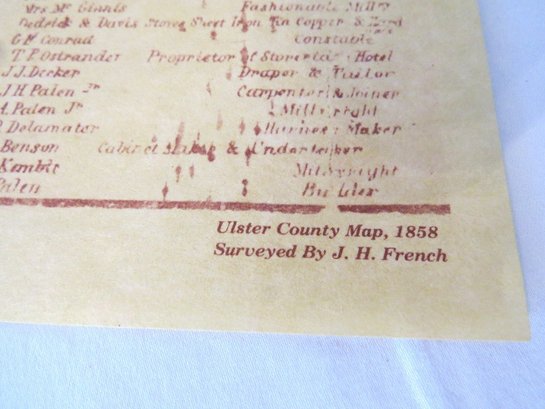 Mrs Mc Ginnis Fashionable Millry
Dedrick & Davis Stoves Sheet Iron Tin Copper &
G F Conrad Constable
T. P. Ostrander Proprietor of Hotel
J. J. Decker Draper & Tailor
J. H Palen Jr Carpenter & Joiner
A. Palen Jr Millwright
Delamater Harness Maker
Benson Cabinet Maker & Undertaker
Millwright
Palen Builder
Ulster County Map, 1858
Surveyed By J. H. French